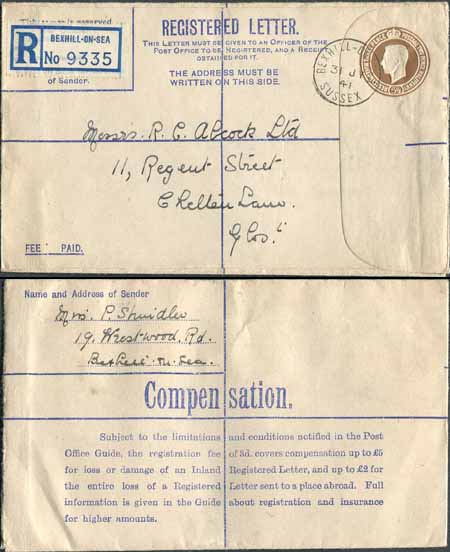 REGISTERED LETTER.
THIS LETTER MUST BE GIVEN TO AN OFFICER OF THE
POST OFFICE TO BE REGISTERED, AND A RECEIPT
OBTAINED FOR IT.
THE ADDRESS MUST BE
WRITTEN ON THIS SIDE.
R
BEXHILL-ON-SEA
No 9335
of Sender.
BEXHILL-O
31 JY
41
SUSSEX
Messrs. R. C. Alcock Ltd
11, Regent Street
Cheltenham.
Glos.
FEE PAID.
Name and Address of Sender
Mrs. P. Shindler
19, Westwood. Rd.
Bexhill-on-Sea.
Compensation.
Subject to the limitations and conditions notified in the Post
Office Guide, the registration fee of 3d. covers compensation up to £5
for loss or damage of an Inland Registered Letter, and up to £2 for
the entire loss of a Registered Letter sent to a place abroad. Full
information is given in the Guide about registration and insurance
for higher amounts.